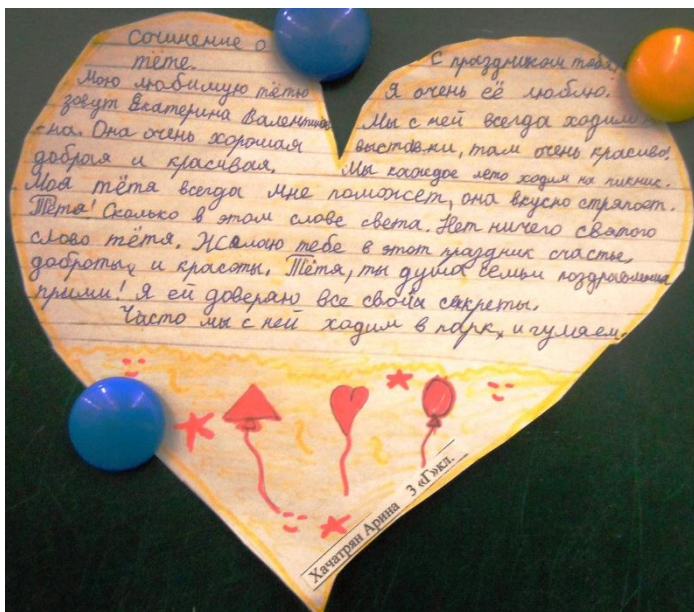 Сочинение о
тёте.
Мою любимую тётю
зовут Екатерина Валентинов
-на. Она очень хорошая
добрая и красивая.
С праздником тебя,
Я очень её люблю.
Мы с ней всегда ходим на
выставки, там очень красиво!
Мы каждое лето ходим на пикник.
Моя тётя всегда мне поможет, она вкусно стряпает.
Тётя! Сколько в этом слове света. Нет ничего святого
слово тётя. Желаю тебе в этот праздник счастье,
доброты, и красоты. Тётя, ты душа семьи поздравления
прими! Я ей доверяю все свойи секреты.
Часто мы с ней ходим в парк, и гуляем.
Хачатрян Арина 3 «Г»кл.